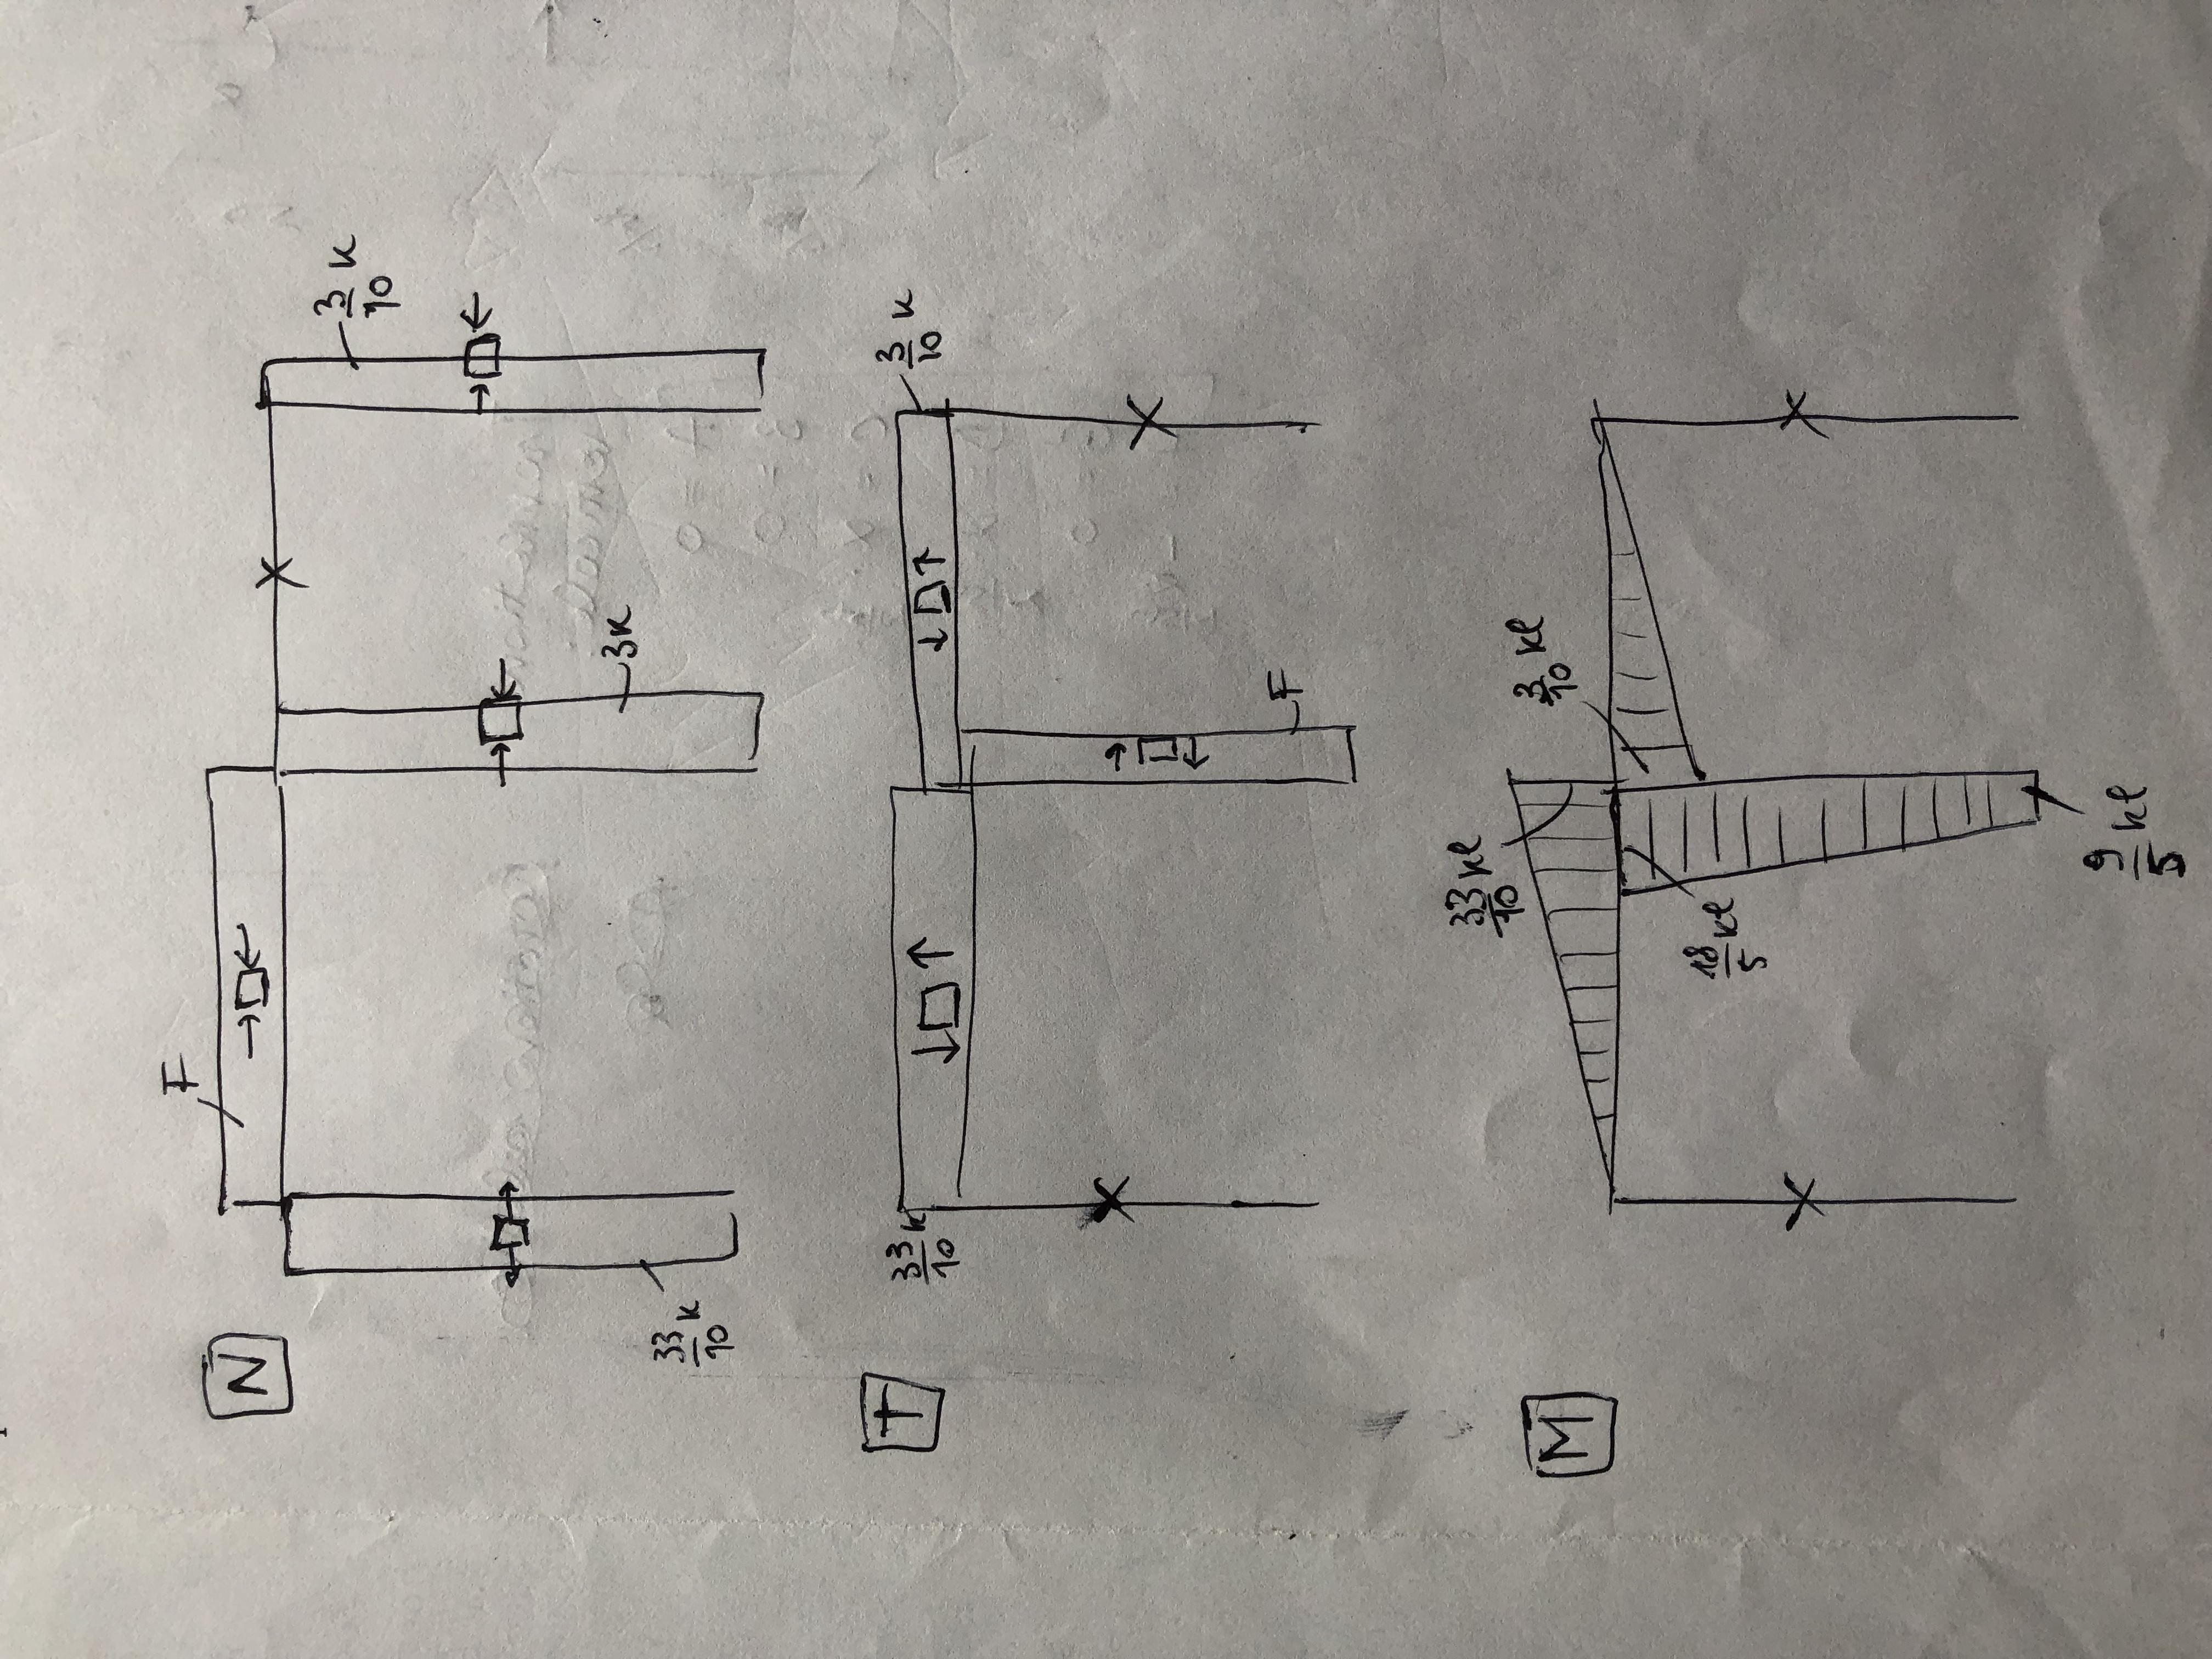 N
F
3/10 K
3K
33/10 K
T
3/10 K
F
33/10 K
M
33/10 Kl
3/10 Kl
18/5 Kl
9/5 Kl